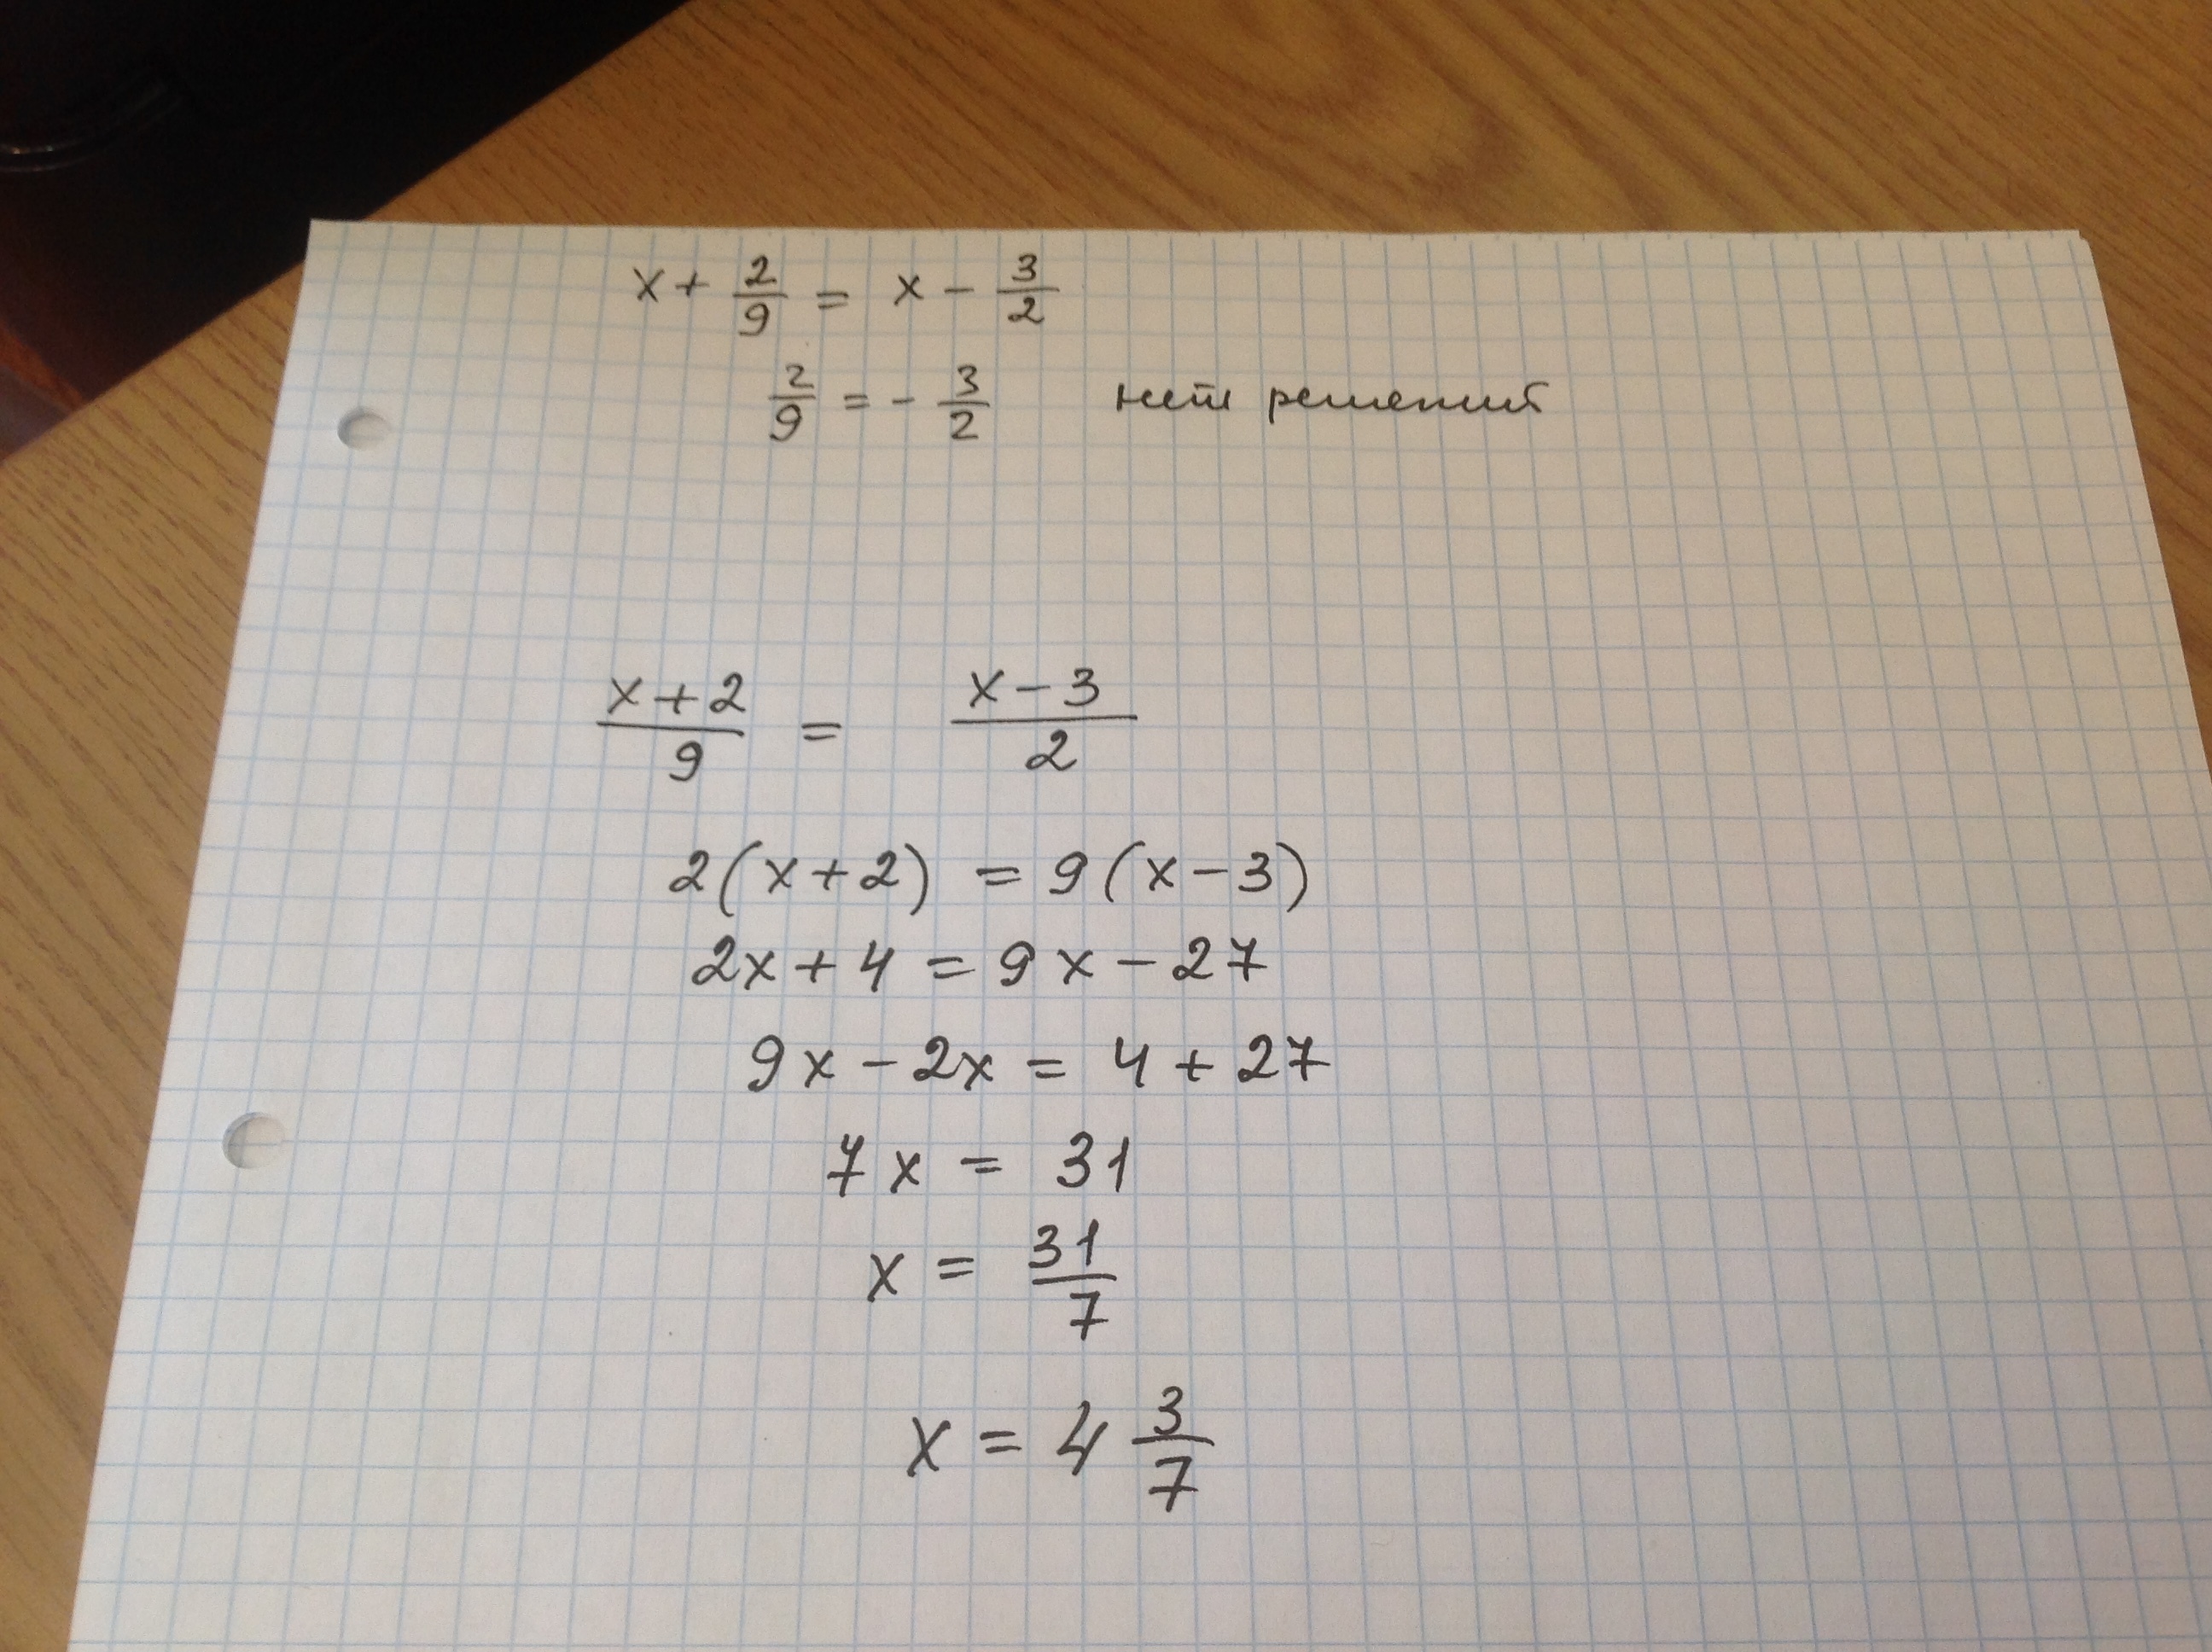 x + 2/9 = x - 3/2
2/9 = - 3/2 нет решений
(x + 2)/9 = (x - 3)/2
2(x + 2) = 9(x - 3)
2x + 4 = 9x - 27
9x - 2x = 4 + 27
7x = 31
x = 31/7
x = 4 3/7